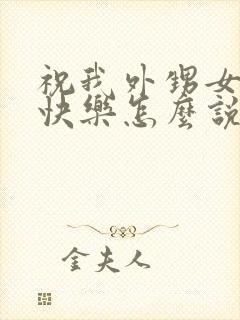 祝我外甥女
快樂怎麼說
金夫人